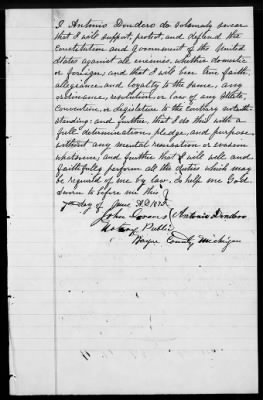 I Antonio Dondero do solemnly swear
that I will support, protect, and defend the
Constitution and Government of the United
States against all enemies, whether domestic
or foreign; and that I will bear true faith,
allegiance and loyalty to the same, any
ordinance, resolution or law of any State,
Convention, or Legislature to the contrary notwith-
standing: and further, that I do this with a
full determination, pledge, and purpose
without any mental reservation or evasion
whatsoever, and further that I will well and
faithfully perform all the duties which may
be required of me by law, So help me God
Sworn to before me this
7th day of June A.D.
John Antonio Dondero
Notary Public
Wayne County Michigan